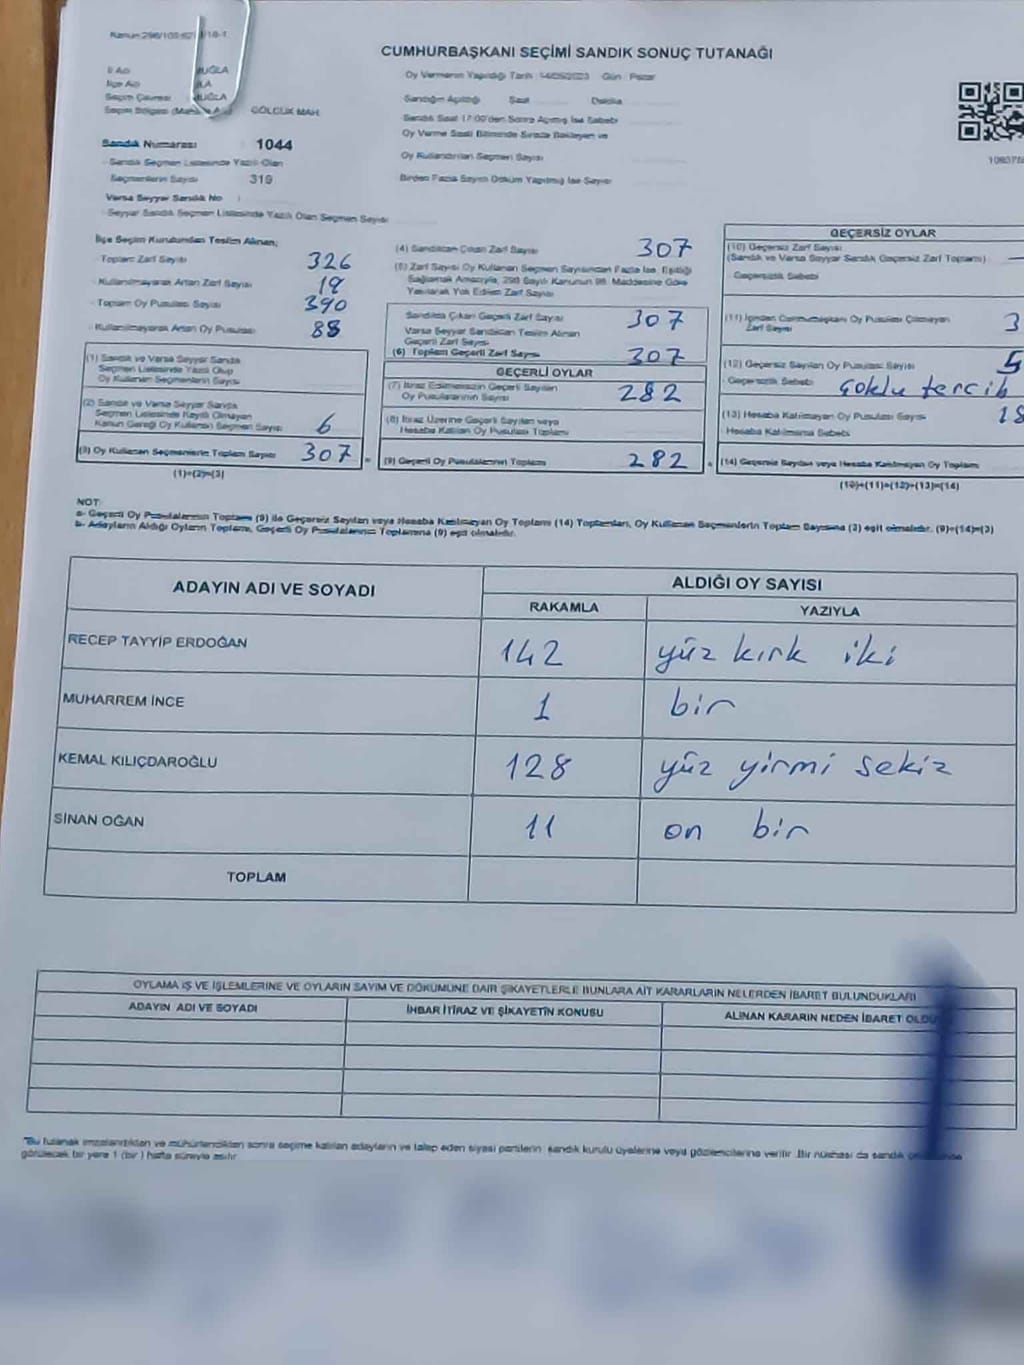 CUMHURBAŞKANI SEÇİMİ SANDIK SONUÇ TUTANAĞI
İl Adı
İlçe Adı
Seçim Çevresi
GÖLCÜK MAH.
Sandık Numarası 1044
Sandık Seçmen Listesinde Yazılı Olan
Seçmenlerin Sayısı 319
Varsa Seyyar Sandık No
Seyyar Sandık Seçmen Listesinde Yazılı Olan Seçmen Sayısı
Oy Vermenin Yapıldığı Tarih 14/05/2023 Gün : Pazar
Sandığın Açıldığı Saat Dakika
Sandık Saat 17:00'den Sonra Açılmış İse Sebebi
Oy Verme Saati Bitiminde Sırada Bekleyen ve
Oy Kullandırılan Seçmen Sayısı
Birden Fazla Sayım Döküm Yapılmış İse Sayısı
İlçe Seçim Kurulundan Teslim Alınan;
Toplam Zarf Sayısı 326
Kullanılmayarak Artan Zarf Sayısı 19
Toplam Oy Pusulası Sayısı 390
Kullanılmayarak Artan Oy Pusulası 88
(1) Sandık ve Varsa Seyyar Sandık
Seçmen Listesinde Yazılı Olup
Oy Kullanan Seçmenlerin Sayısı
(2) Sandık ve Varsa Seyyar Sandık
Seçmen Listesinde Kayıtlı Olmayan
Kanun Gereği Oy Kullanan Seçmen Sayısı 6
(3) Oy Kullanan Seçmenlerin Toplam Sayısı 307
(1)+(2)=(3)
(4) Sandıktan Çıkan Zarf Sayısı 307
(5) Zarf Sayısı Oy Kullanan Seçmen Sayısından Fazla İse, Eşitliği
Sağlamak Amacıyla, 298 Sayılı Kanunun 98. Maddesine Göre
Yakılarak Yok Edilen Zarf Sayısı
Sandıkta Çıkan Geçerli Zarf Sayısı 307
Varsa Seyyar Sandıktan Teslim Alınan
Geçerli Zarf Sayısı
(6) Toplam Geçerli Zarf Sayısı 307
GEÇERLİ OYLAR
(7) İtiraz Edilmeksizin Geçerli Sayılan
Oy Pusulalarının Sayısı 282
(8) İtiraz Üzerine Geçerli Sayılan veya
Hesaba Katılan Oy Pusulası Toplamı
(9) Geçerli Oy Pusulalarının Toplamı 282
GEÇERSİZ OYLAR
(10) Geçersiz Zarf Sayısı
(Sandık ve Varsa Seyyar Sandık Geçersiz Zarf Toplamı)
Geçersizlik Sebebi
(11) İçinden Cumhurbaşkanı Oy Pusulası Çıkmayan
Zarf Sayısı 3
(12) Geçersiz Sayılan Oy Pusulası Sayısı 5
Geçersizlik Sebebi çoklu tercih
(13) Hesaba Katılmayan Oy Pusulası Sayısı
Hesaba Katılmama Sebebi
(14) Geçersiz Sayılan veya Hesaba Katılmayan Oy Toplamı
(10)+(11)+(12)+(13)=(14)
NOT:
a- Geçerli Oy Pusulalarının Toplamı (9) ile Geçersiz Sayılan veya Hesaba Katılmayan Oy Toplamı (14) Toplamları, Oy Kullanan Seçmenlerin Toplam Sayısına (3) eşit olmalıdır. (9)+(14)=(3)
b- Adayların Aldığı Oyların Toplamı, Geçerli Oy Pusulalarının Toplamına (9) eşit olmalıdır.
ADAYIN ADI VE SOYADI ALDIĞI OY SAYISI
RAKAMLA YAZIYLA
RECEP TAYYİP ERDOĞAN 142 yüz kırk iki
MUHARREM İNCE 1 bir
KEMAL KILIÇDAROĞLU 128 yüz yirmi sekiz
SİNAN OĞAN 11 on bir
TOPLAM
OYLAMA İŞ VE İŞLEMLERİNE VE OYLARIN SAYIM VE DÖKÜMÜNE DAİR ŞİKAYETLERLE BUNLARA AİT KARARLARIN NELERDEN İBARET BULUNDUKLARI
ADAYIN ADI VE SOYADI İHBAR İTİRAZ VE ŞİKAYETİN KONUSU ALINAN KARARIN NEDEN İBARET
"Bu tutanak imzalandıktan ve mühürlendikten sonra seçime katılan adayların ve talep eden siyasi partilerin sandık kurulu üyelerine veya gözlemcilerine verilir. Bir nüshası da sandık
görülecek bir yere 1 (bir) hafta süreyle asılır.